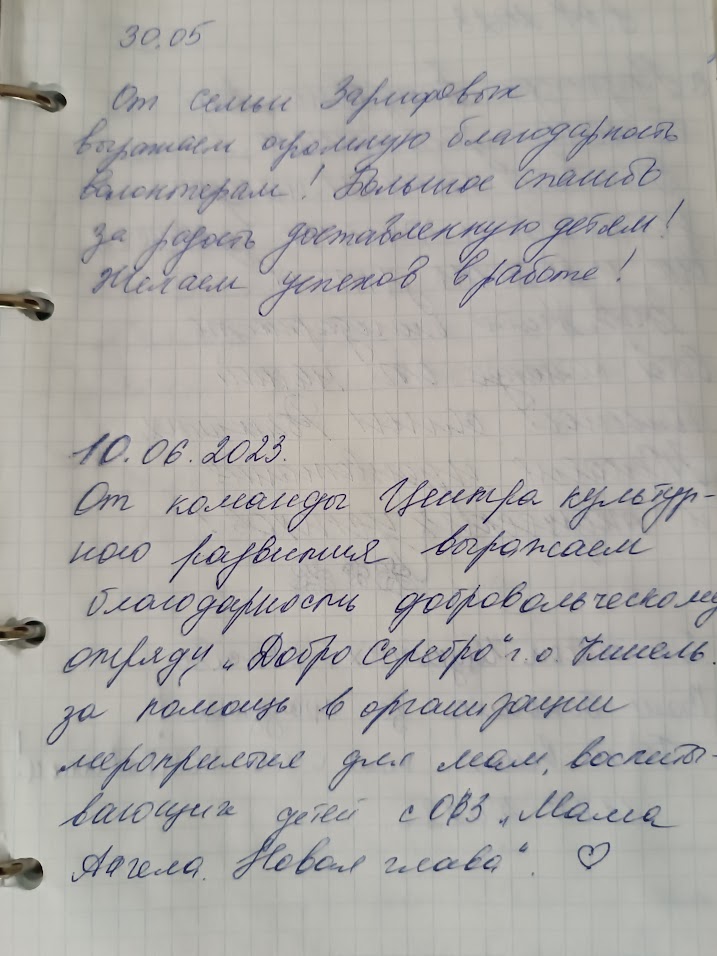 30.05
От семьи Зарифовых
выражаем огромную благодарность
волонтерам! Большое спасибо
за радость доставленную детям!
Желаем успехов в работе!
10.06.2023.
От команды Центра культур-
ного развития выражаем
благодарность добровольческому
отряду „Добро Серебро“ г.о. Кинель.
за помощь в организации
мероприятия для мам, воспиты-
вающих детей с ОВЗ „Мама
Ангела. Новая глава“. ♡